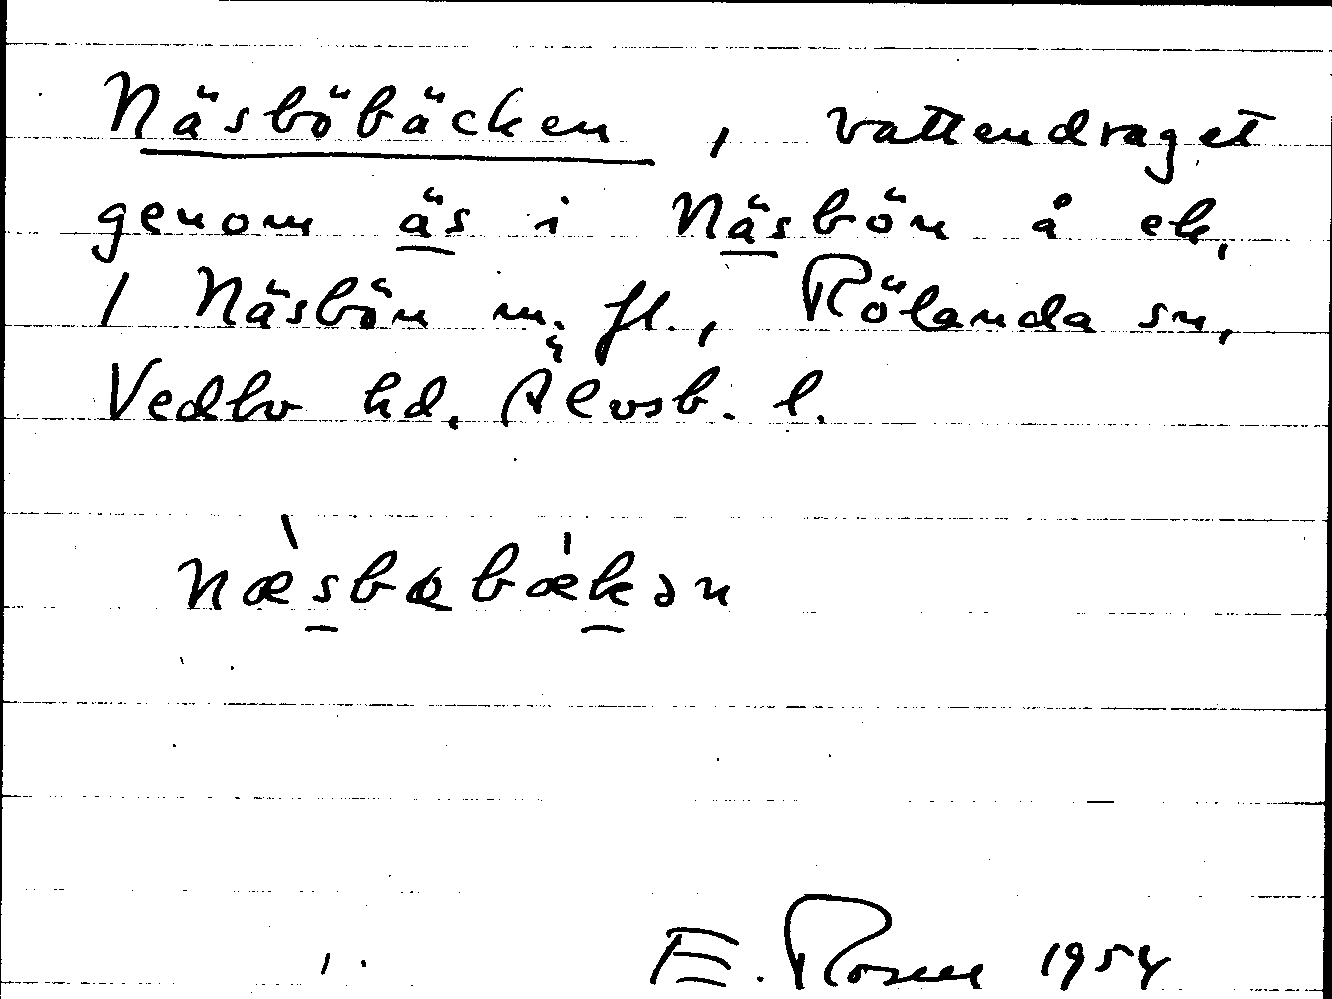 Näsböbäcken, vattendraget
genom äs i Näsbön å ek.
1 Näsbön m. fl., Rölanda sn,
Vedbo hd, Älvsb. l.
E. Rosell 1954